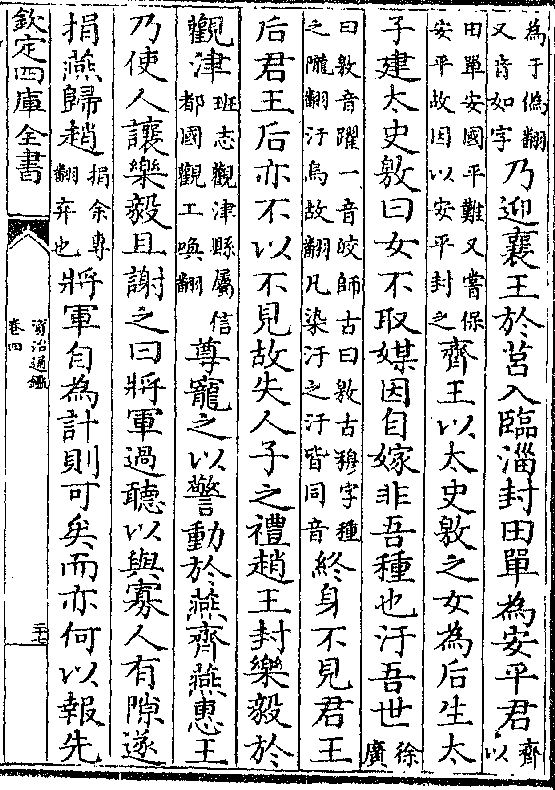 為于偽翻又皆如字乃迎襄王於莒入臨淄封田單為安平君齊以
田單安國平難又嘗保安平故因以安平封之齊王以太史敫之女為后生太
子建太史敫曰女不取媒因自嫁非吾種也汙吾世徐廣
曰敫音躍一音皎師古曰敫古穆字種之隴翻汙烏故翻凡染汙之汙皆同音終身不見君王
后君王后亦不以不見故失人子之禮趙王封樂毅於
觀津班志觀津縣屬信都國觀工喚翻尊寵之以警動於燕齊燕惠王
乃使人讓樂毅且謝之曰將軍過聽以與寡人有隙遂
捐燕歸趙捐余專翻弃也將軍自為計則可矣而亦何以報先
欽定四庫全書
資治通鑑
卷四